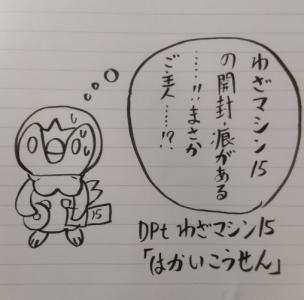 わざマシン15
の開封痕がある
……!! まさか
ご主人……!?
15
DPt わざマシン15
「はかいこうせん」